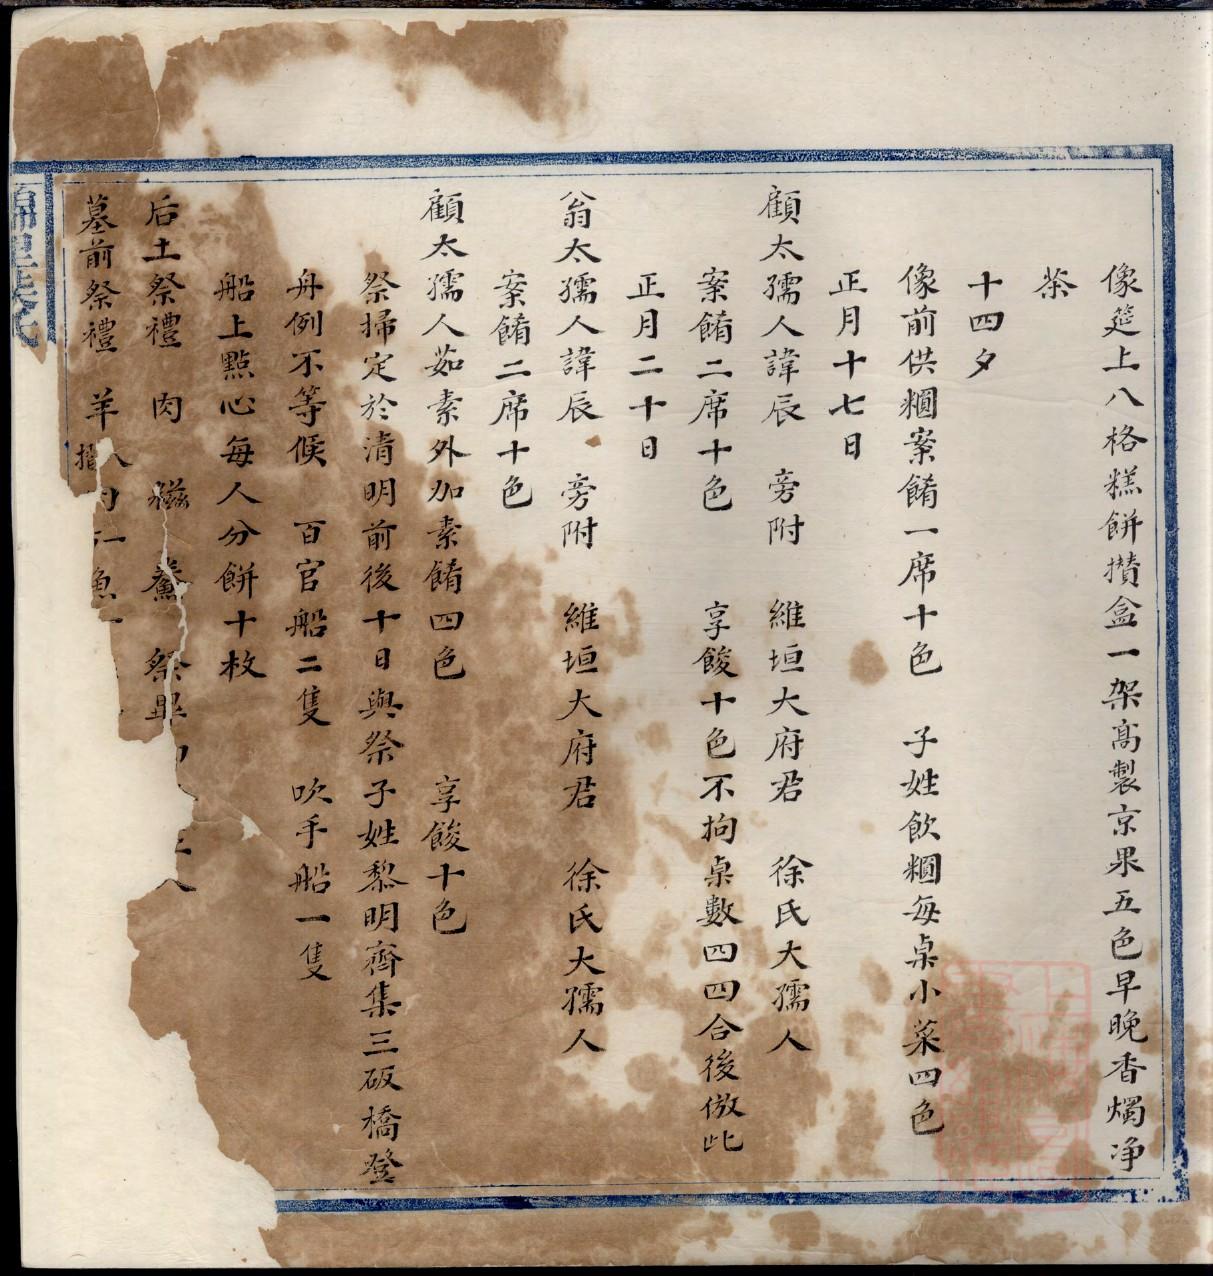 像筵上八格糕餅攢盒一架高製京果五色早晚香燭净
茶
十四夕
像前供糰案餚一席十色 子姓飲糰每桌小菜四色
正月十七日
顧太孺人諱辰 旁附 維垣大府君 徐氏大孺人
案餚二席十色 享餕十色不拘桌數四四合後倣此
正月二十日
翁太孺人諱辰 旁附 維垣大府君 徐氏大孺人
案餚二席十色
顧太孺人茹素外加素餚四色 享餕十色
祭掃定於清明前後十日與祭子姓黎明齊集三砅橋登
舟例不等候 百官船二隻 吹手船一隻
船上點心每人分餅十枚
后土祭禮 肉 鯗 祭畢
墓前祭禮 羊 魚